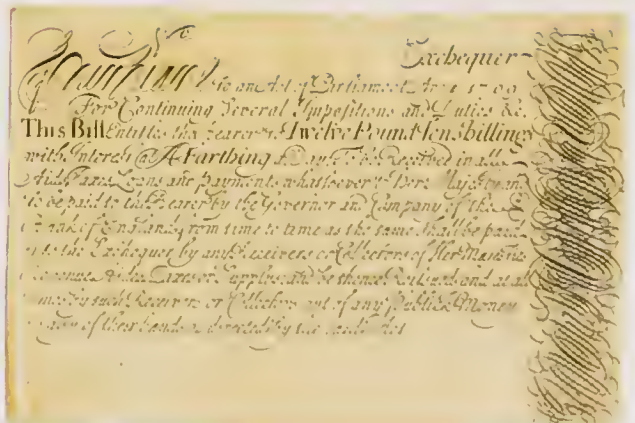 N.º Exchequer
Pursuant to an Act of Parliament Anno 1709
For Continuing Several Impositions and Duties &c.
This Bill Entitles the bearer to Twelve Pound Ten shillings
with Interest @ A Farthing a Day To be Received in all
Aids Taxes Loans and payments whatsoever to Her Majesty and
to be paid to the Bearer by the Governor and Company of the
Bank of England from time to time as the same shall be paid
into the Exchequer by any Receivers or Collectors of Her Majesties
Revenues Aides Taxes or Supplys and be thence Reissued and at all
times by such Receivers or Collectors out of any Publick Money
in any of their hands as directed by the said Act